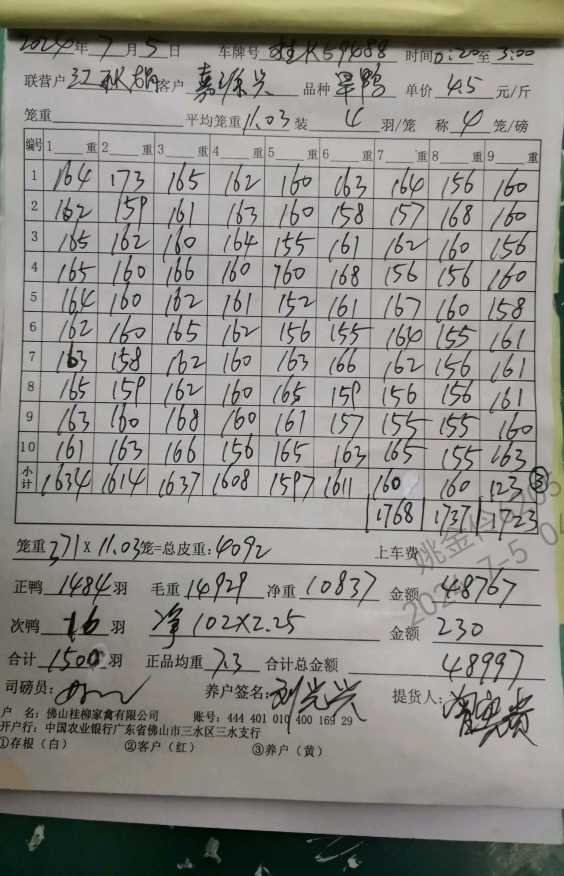 2024年7月5日 车牌号 桂K59488 时间0:20至3:00
联营户 客户 嘉源兴 品种 旱鸭 单价 4.5 元/斤
笼重 平均笼重 11.03 装 4 羽/笼 称 4 笼/磅
编号 1 重 2 重 3 重 4 重 5 重 6 重 7 重 8 重 9 重
1 164 173 165 162 160 163 164 156 160
2 162 159 161 163 160 158 157 168 160
3 165 162 160 164 155 161 162 160 156
4 165 160 166 160 160 168 156 156 160
5 164 160 162 161 152 161 167 160 158
6 162 160 165 162 156 155 164 155 161
7 163 158 162 160 163 166 162 156 161
8 165 159 162 160 165 159 156 156 161
9 163 160 168 160 161 157 155 155 160
10 161 163 166 156 165 163 165 155 163
小计 1634 1614 1637 1608 1597 1611 160 160 123 ③
1768 1737 1723
笼重 371×11.03笼=总皮重: 4092 上车费
正鸭 1484 羽 毛重 14929 净重 10837 金额 48767
次鸭 16 羽 净 102×2.25 金额 230
合计 1500 羽 正品均重 7.3 合计总金额 48997
司磅员: 养户签名: 刘兴 提货人:
户 名: 佛山桂柳家禽有限公司 账号: 444 401 010 400 169 29
开户行: 中国农业银行广东省佛山市三水区三水支行
①存根（白） ②客户（红） ③养户（黄）